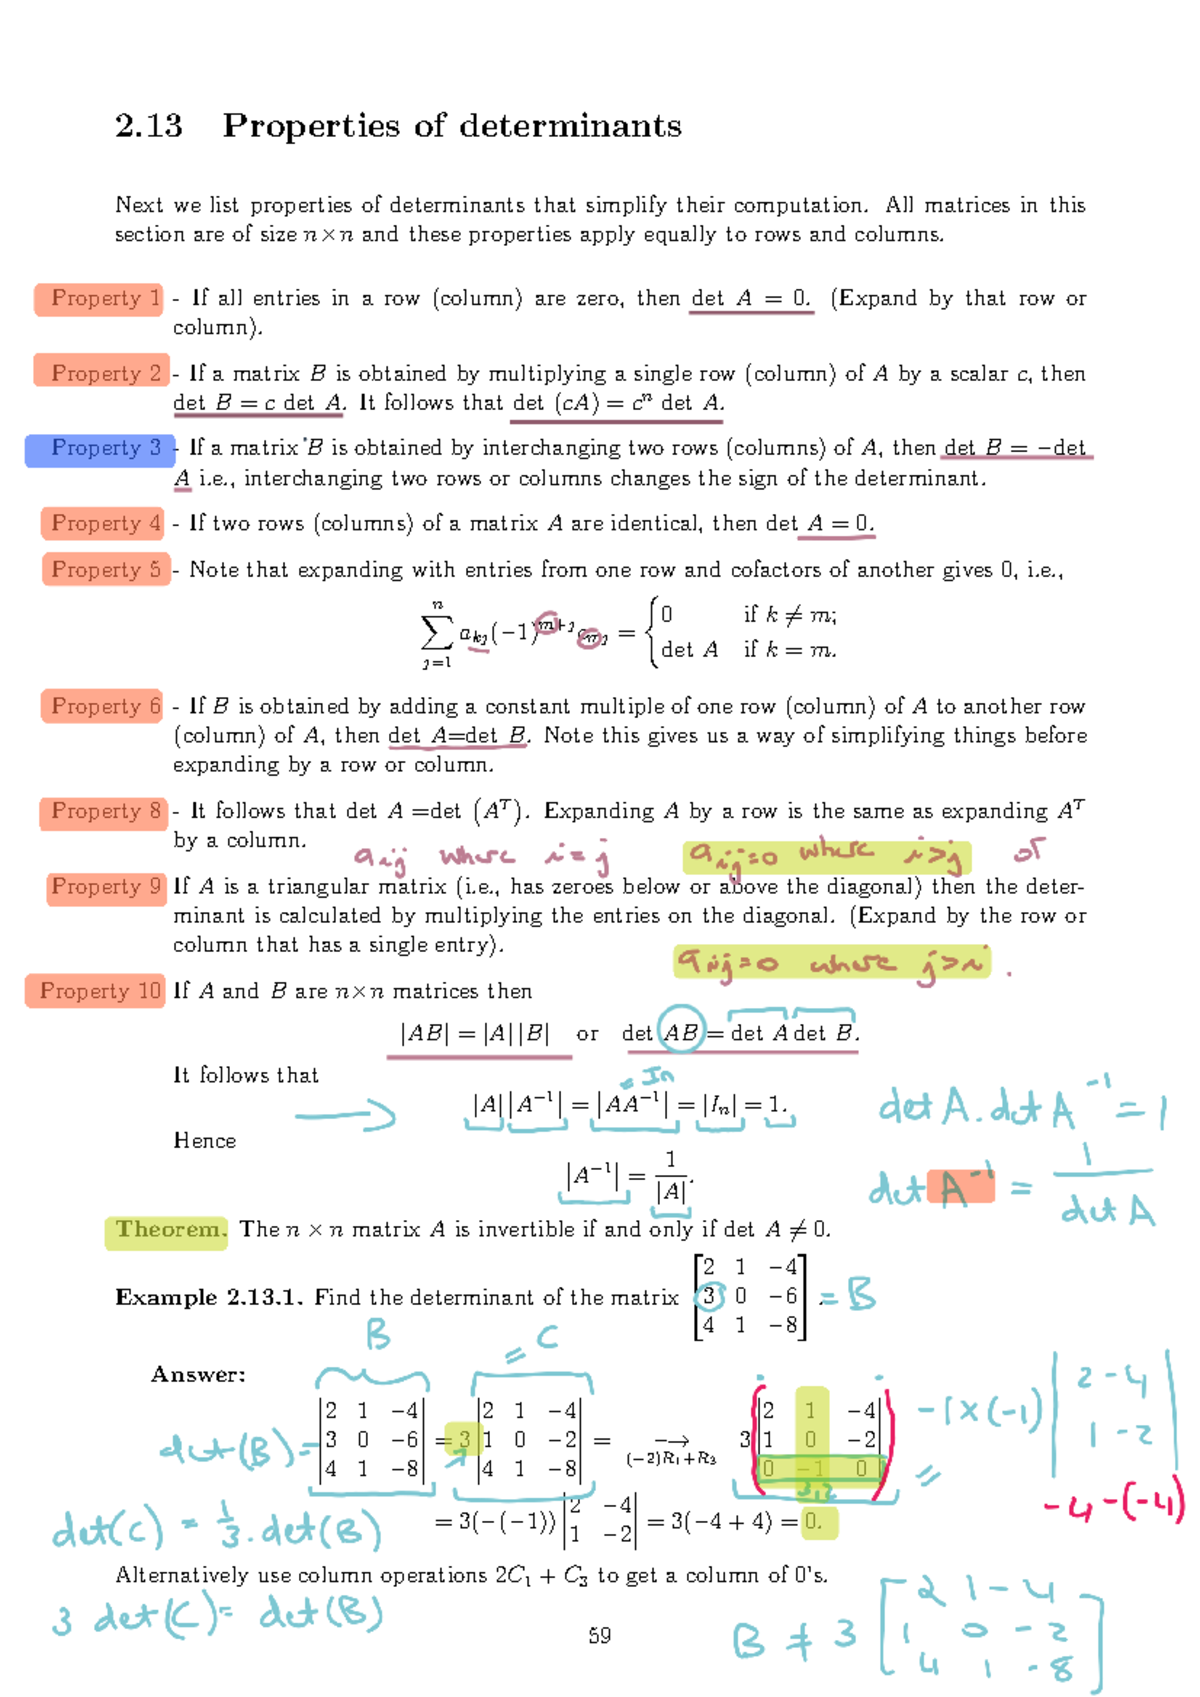 2.13 Properties of determinants
Next we list properties of determinants that simplify their computation. All matrices in this
section are of size n×n and these properties apply equally to rows and columns.
Property 1 - If all entries in a row (column) are zero, then det A = 0. (Expand by that row or
column).
Property 2 - If a matrix B is obtained by multiplying a single row (column) of A by a scalar c, then
det B = c det A. It follows that det (cA) = cⁿ det A.
Property 3 - If a matrix B is obtained by interchanging two rows (columns) of A, then det B = −det
A i.e., interchanging two rows or columns changes the sign of the determinant.
Property 4 - If two rows (columns) of a matrix A are identical, then det A = 0.
Property 5 - Note that expanding with entries from one row and cofactors of another gives 0, i.e.,
n
∑ a_kj (−1)^(m+j) m_j = { 0 if k ≠ m;
j=1
det A if k = m.
Property 6 - If B is obtained by adding a constant multiple of one row (column) of A to another row
(column) of A, then det A=det B. Note this gives us a way of simplifying things before
expanding by a row or column.
Property 8 - It follows that det A =det (Aᵀ). Expanding A by a row is the same as expanding Aᵀ
by a column.
aij where i = j aij=0 where i>j or
Property 9 If A is a triangular matrix (i.e., has zeroes below or above the diagonal) then the deter-
minant is calculated by multiplying the entries on the diagonal. (Expand by the row or
column that has a single entry).
aij=0 where j>i .
Property 10 If A and B are n×n matrices then
|AB| = |A||B| or det AB = det A det B.
It follows that
= In
|A||A⁻¹| = |AA⁻¹| = |Iₙ| = 1.
det A . det A⁻¹ = 1
Hence
|A⁻¹| = 1/|A|.
det A⁻¹ = 1/det A
Theorem. The n × n matrix A is invertible if and only if det A ≠ 0.
Example 2.13.1. Find the determinant of the matrix
2 1 −4
3 0 −6
4 1 −8
. = B
B
= C
Answer:
det(B) =
2 1 −4
3 0 −6
4 1 −8
= 3
2 1 −4
1 0 −2
4 1 −8
= → (−2)R₁+R₃
3
2 1 −4
1 0 −2
0 −1 0
3,2
- 1 × (-1)
2 -4
1 -2
=
-4-(-4)
= 3(−(−1))
2 −4
1 −2
= 3(−4 + 4) = 0.
det(C) = 1/3 . det(B)
Alternatively use column operations 2C₁ + C₃ to get a column of 0's.
3 det(C) = det(B)
59
B ≠ 3
2 1 -4
1 0 -2
4 1 -8